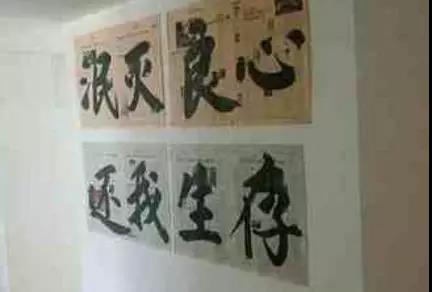 泯灭良心
还我生存